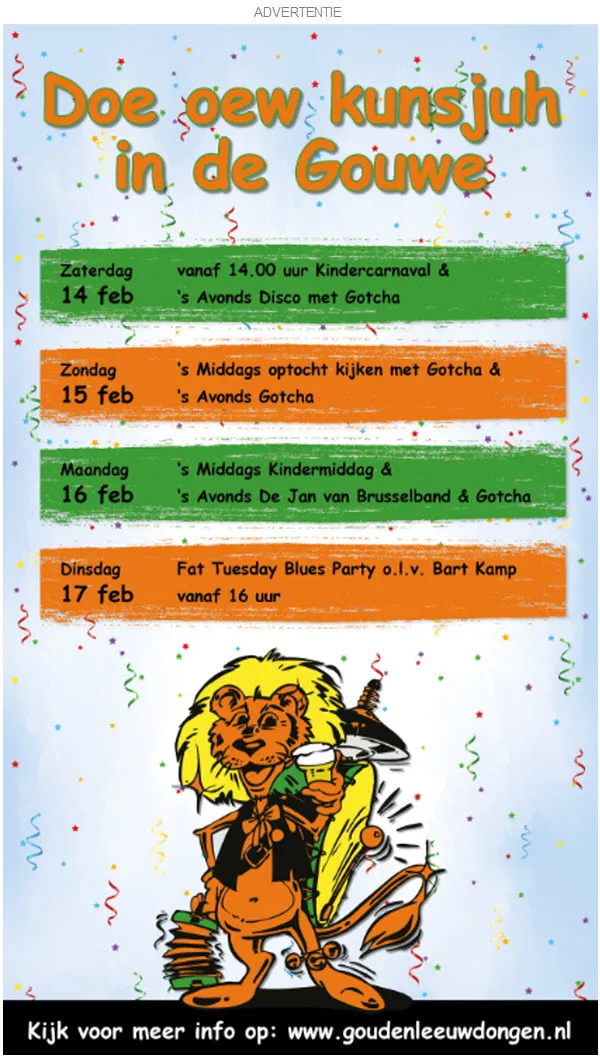 ADVERTENTIE
Doe oew kunsjuh
in de Gouwe
Zaterdag vanaf 14.00 uur Kindercarnaval &
14 feb 's Avonds Disco met Gotcha
Zondag 's Middags optocht kijken met Gotcha &
15 feb 's Avonds Gotcha
Maandag 's Middags Kindermiddag &
16 feb 's Avonds De Jan van Brusselband & Gotcha
Dinsdag Fat Tuesday Blues Party o.l.v. Bart Kamp
17 feb vanaf 16 uur
Kijk voor meer info op: www.goudenleeuwdongen.nl